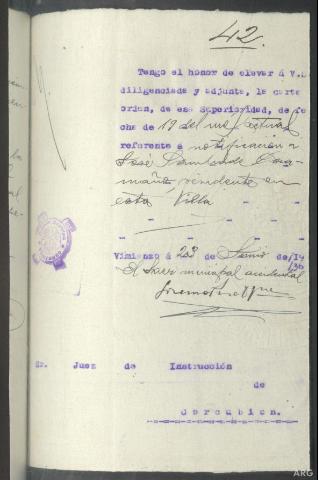 42.
Tengo el honor de elevar á V.
diligenciada y adjunta, la carta
orden, de esa Superioridad, de fe
cha de 19 del mes actual
referente a notificación a
José
residente en
esta Villa
Vimianzo á 23 de Junio de/19
/36
El Juez municipal accidental
Sr. Juez de Instrucción
de
Corcubion.
ARG